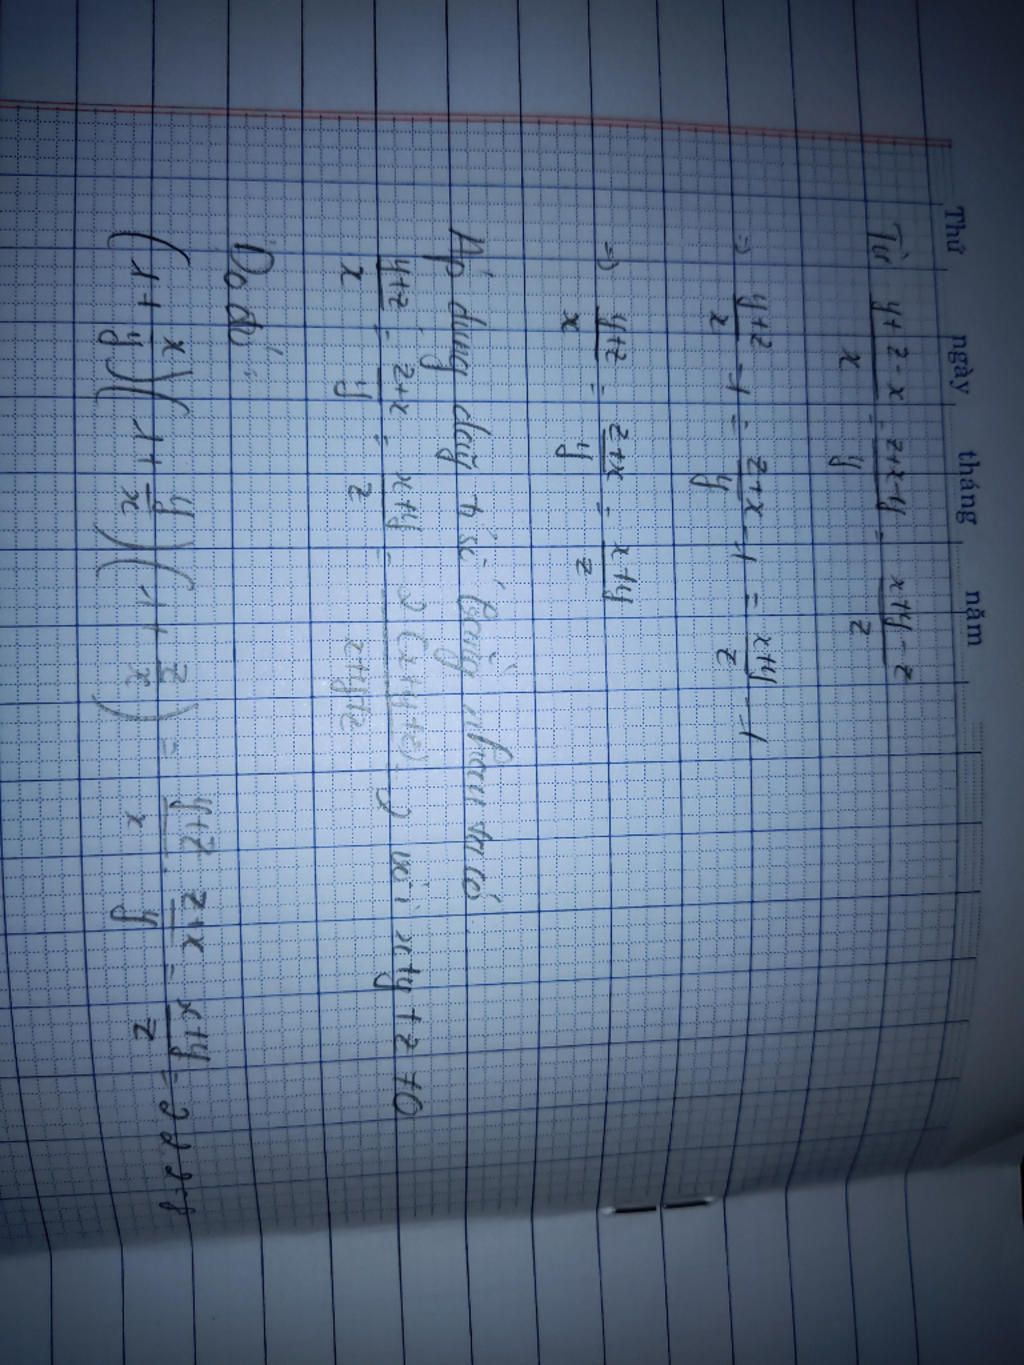 Thứ ngày tháng năm
Từ y+z-x/x = z+x-y/y = x+y-z/z
=> y+z/x - 1 = z+x/y - 1 = x+y/z - 1
=> y+z/x = z+x/y = x+y/z
Áp dụng dãy t/số bằng nhau ta có
y+z/x = z+x/y = x+y/z = 2(x+y+z)/x+y+z = 2 với x+y+z ≠0
Do đó:
(1 + x/y)(1 + y/x)(1 + z/x) = y+z/x . z+x/y = x+y/z = 2.2.2=8